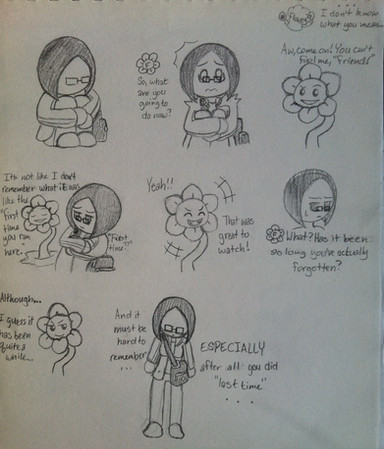 So, what
are you
going to
do now?
I... don't know
what you mean...
Aw, come on! You can't
fool me, "friend!"
It's not like I don't
remember what it was
like the "first
time
you ran
in
here.
"First
time"?
Yeah!!
That was
great to
watch!
What? Has it been
so long you've actually
forgotten?
Although...
I guess it
has been
quite a
while...
And it
must be
hard to
remember
...
ESPECIALLY
after all you did
"last time"
. . .